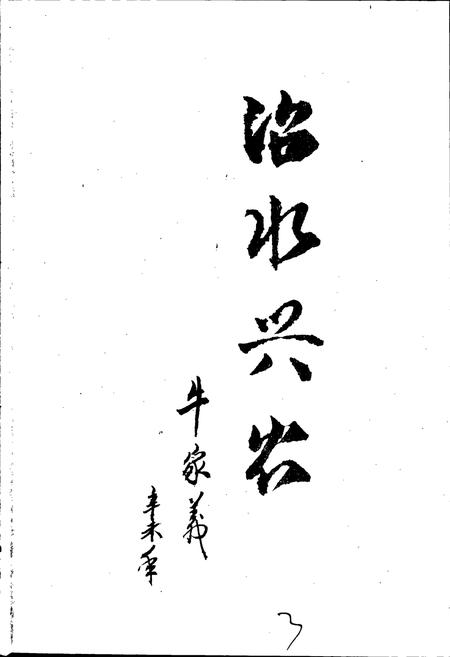 治水兴农
牛家義
辛未年
3